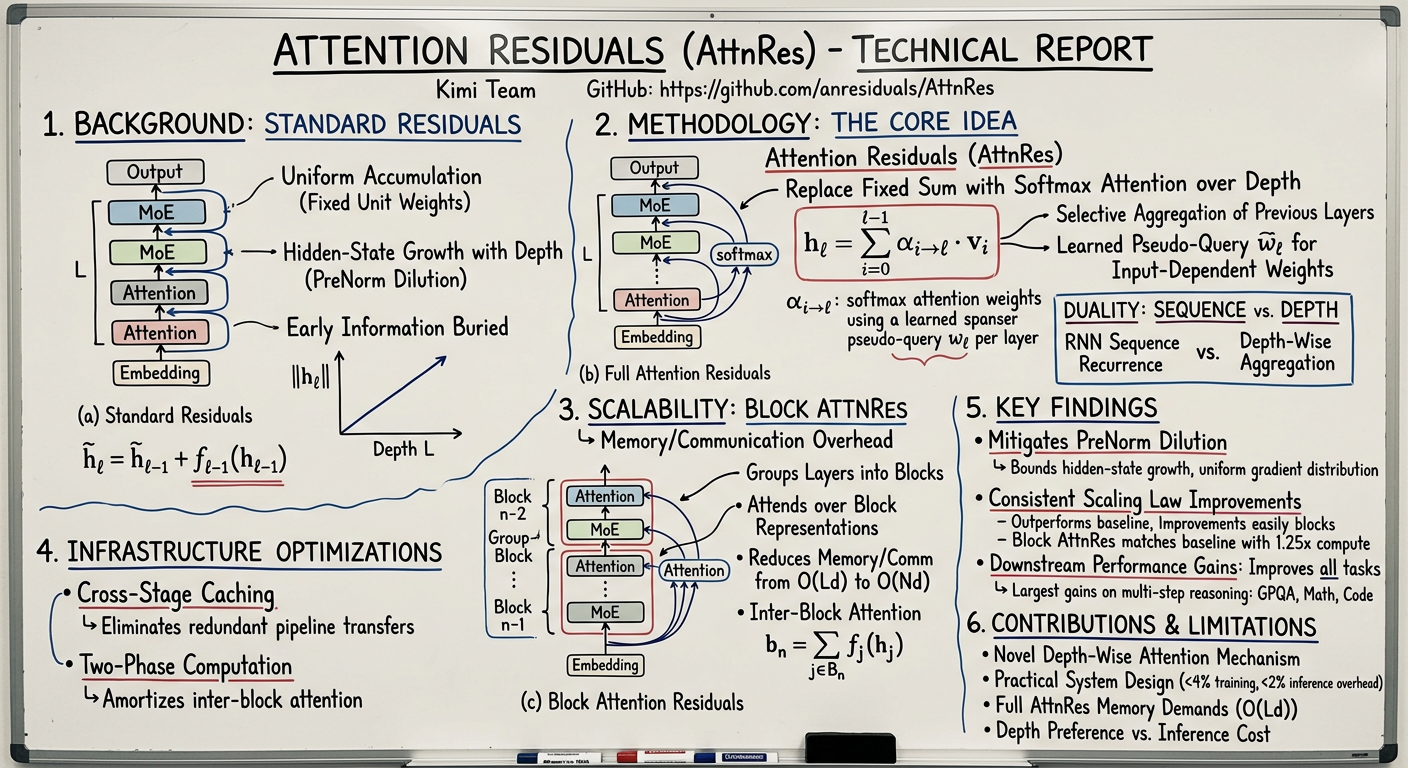 ATTENTION RESIDUALS (AttnRes) – TECHNICAL REPORT
Kimi Team
GitHub: https://github.com/anresiduals/AttnRes
1. BACKGROUND: STANDARD RESIDUALS
Output
MoE
MoE
Attention
Attention
Embedding
L
Uniform Accumulation
(Fixed Unit Weights)
Hidden-State Growth with Depth
(PreNorm Dilution)
Early Information Buried
||hℓ||
Depth L
(a) Standard Residuals
h̃ℓ = h̃ℓ−1 + fℓ−1(hℓ−1)
2. METHODOLOGY: THE CORE IDEA
Output
MoE
MoE
Attention
Embedding
L
softmax
(b) Full Attention Residuals
Attention Residuals (AttnRes)
Replace Fixed Sum with Softmax Attention over Depth
hℓ = ∑ i=0 ℓ−1 αi→ℓ · vi
Selective Aggregation of Previous Layers
Learned Pseudo-Query w̃ℓ for
Input-Dependent Weights
αi→ℓ: softmax attention weights
using a learned spanser
pseudo-query wℓ per layer
DUALITY: SEQUENCE vs. DEPTH
RNN Sequence
Recurrence
vs.
Depth-Wise
Aggregation
3. SCALABILITY: BLOCK ATTNRES
↳ Memory/Communication Overhead
Block
n-2
Group
Block
⋮
Block
n-1
Attention
MoE
Attention
MoE
Embedding
Attention
(c) Block Attention Residuals
Groups Layers into Blocks
• Attends over Block
Representations
• Reduces Memory/Comm
from O(Ld) to O(Nd)
• Inter-Block Attention
bn = ∑ j∈Bn fj(hj)
4. INFRASTRUCTURE OPTIMIZATIONS
• Cross-Stage Caching
↳ Eliminates redundant pipeline transfers
• Two-Phase Computation
↳ Amortizes inter-block attention
5. KEY FINDINGS
• Mitigates PreNorm Dilution
↳ Bounds hidden-state growth, uniform gradient distribution
• Consistent Scaling Law Improvements
– Outperforms baseline, Improvements easily blocks
– Block AttnRes matches baseline with 1.25x compute
• Downstream Performance Gains: Improves all tasks
↳ Largest gains on multi-step reasoning: GPQA, Math, Code
6. CONTRIBUTIONS & LIMITATIONS
• Novel Depth-Wise Attention Mechanism
• Practical System Design (<4% training, <2% inference overhead)
• Full AttnRes Memory Demands (O(Ld))
• Depth Preference vs. Inference Cost